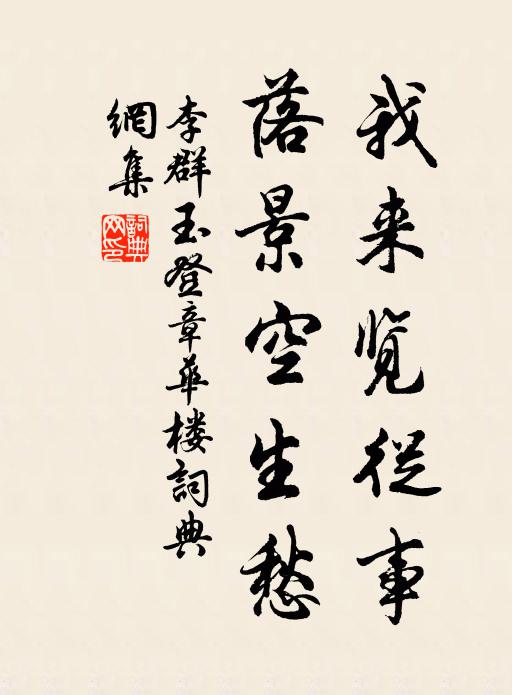 我来览從事
落景空生愁
李群玉登章華楼詞典
網集
詞典
网印